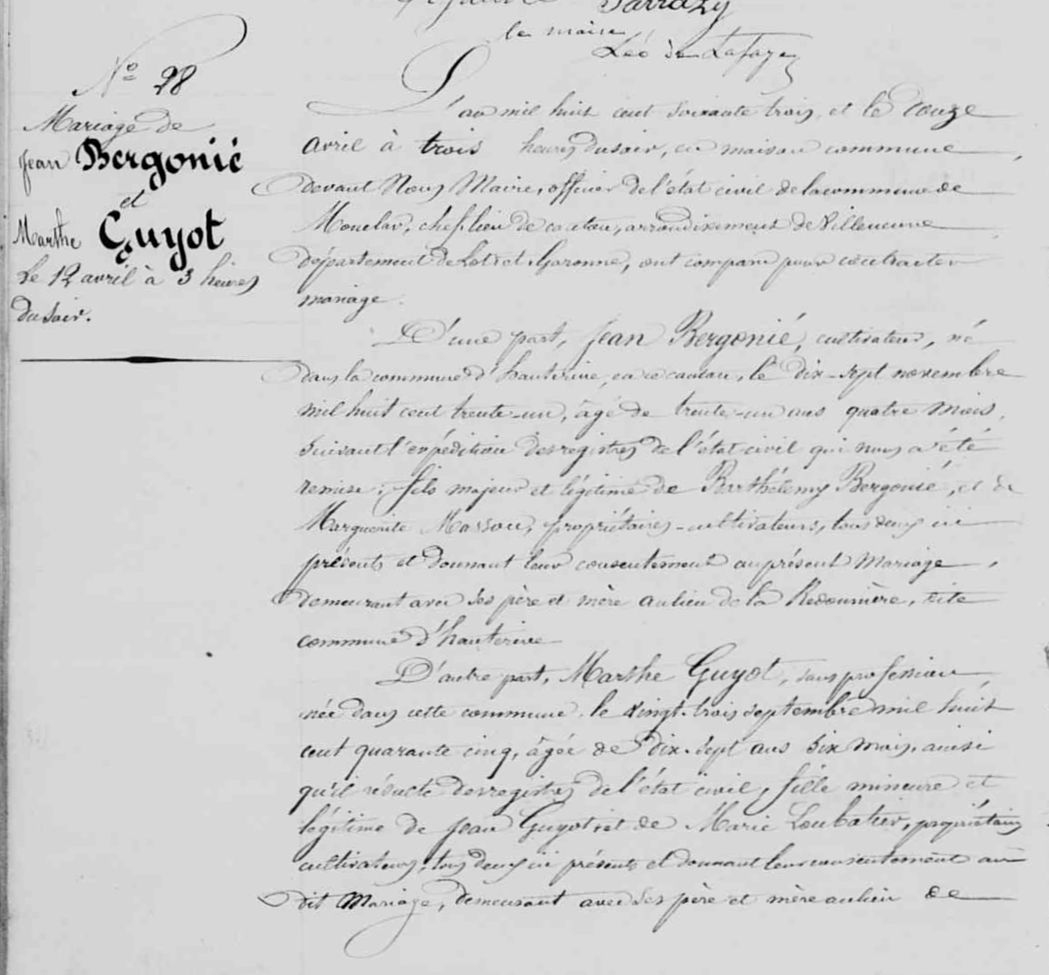 Sarrazy
le maire
Léo de Lafaye
N° 28
Mariage de
Jean Bergonié
et
Marthe Guyot
Le 12 avril à 3 heures
du soir.
L'an mil huit cent soixante trois, et le douze
avril à trois heures du soir, en maison commune,
devant Nous Maire, officier de l'état civil de la commune de
Monclar, chef-lieu de canton, arrondissement de Villeneuve
département de Lot et Garonne, ont comparu pour contracter
mariage.
D'une part, Jean Bergonié, cultivateur, né
dans la commune d'hauterive, en ce canton, le dix-sept novembre
mil huit cent trente-un, âgé de trente-un ans quatre mois,
suivant l'expédition des registres de l'état civil qui nous a été
remise; fils majeur et légitime de Barthélemy Bergonié, et de
Marguerite Marsou, propriétaires-cultivateurs, tous deux ici
présents et donnant leur consentement au présent Mariage,
demeurant avec ses père et mère au lieu de la, dite
commune d'hauterive
D'autre part, Marthe Guyot, sans profession,
née dans cette commune, le vingt-trois septembre mil huit
cent quarante cinq, âgée de dix-sept ans six mois, ainsi
qu'il résulte des registres de l'état civil, fille mineure et
légitime de Jean Guyot et de Marie Loubatier, propriétaires
cultivateurs, tous deux ici présents et donnant leur consentement au
dit Mariage, demeurant avec ses père et mère au lieu de